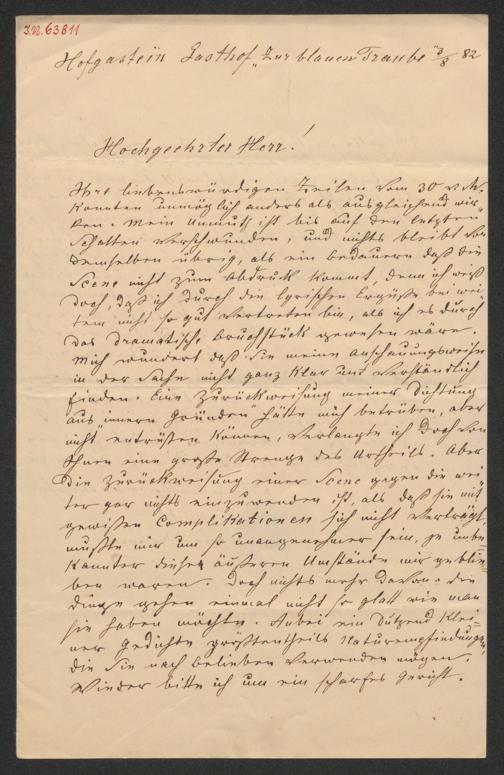 J.N. 63811
Hofgastein Gasthof „Zur blauen Traube" 3/8 82
Hochgeehrter Herr!
Ihre liebenswürdigen Zeilen vom 30 v. M.
konnten unmöglich anders als ausgleichend wir-
ken. Mein Unmuth ist bis auf den letzten
Schatten verschwunden, und nichts bleibt von
demselben übrig, als ein bedauern daß die
Scene nicht zum Abdruck kommt, denn ich weiß
doch, daß ich durch die lyrischen Ergüsse bei wei-
tem nicht so gut vertreten bin, als ich es durch
das dramatische bruchstück gewesen wäre.
Mich wundert daß Sie meine Anschauungsweise
in der Sache nicht ganz klar und verständlich
finden. Eine Zurückweisung meiner Dichtung
aus innern Gründen hätte mich betrüben, aber
nicht entrüsten können, verlangte ich doch von
Ihnen eine große Strenge des Urtheils. Aber
die Zurückweisung einer Scene gegen die wei-
ter gar nichts einzuwenden ist, als daß sie mit
gewissen Complikationen sich nicht verträgt,
mußte mir um so unangenehmer sein, je unbe-
kannter diese äußeren Umstände mir geblie-
ben waren. Doch nichts mehr davon. die
dinge gehen einmal nicht so glatt wie man
sie haben möchte. Anbei ein Dutzend klei-
ner Gedichte größtentheils Naturempfindungen,
die Sie nach belieben verwenden mögen.
Wieder bitte ich um ein scharfes Gericht.